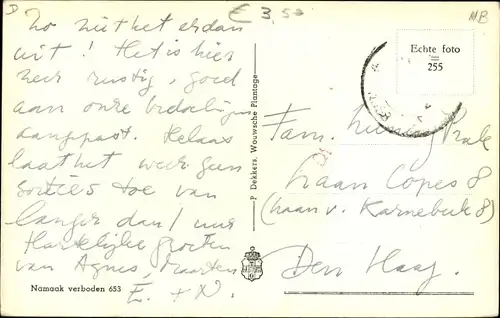 D
€ 3,50
MB
Zo ziet het er dan
uit! Het is hier
zeer rustig, goed
aan onze bedoelingen
aangepast. Helaas
laat het weer geen
sorties toe van
langer dan 1 uur
Hartelijke groeten
van Agnes, Maarten
E. + N.
Namaak verboden 653
P. Dekkers, Wouwsche Plantage
Echte foto
255
Fam.
Laan Copes 8
(Laan v. Karnebeek 8)
Den Haag.